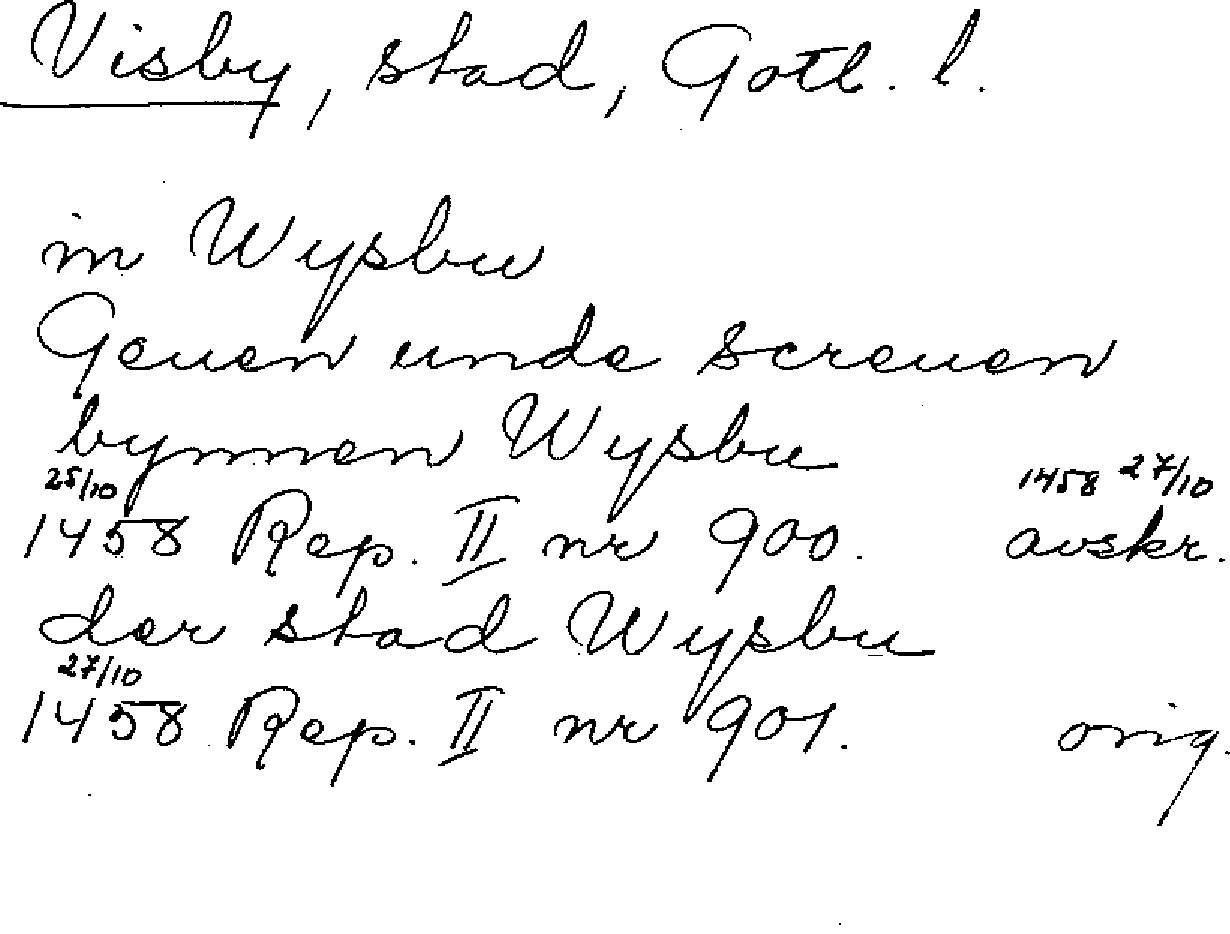 Visby, stad, Gotl. l.
in Wysbu
Geuen unde screuen
bynnen Wysbu
25/10 1458 27/10
1458 Rep. II nr 900. avskr.
der stad Wysbu
27/10
1458 Rep. II nr 901. orig.